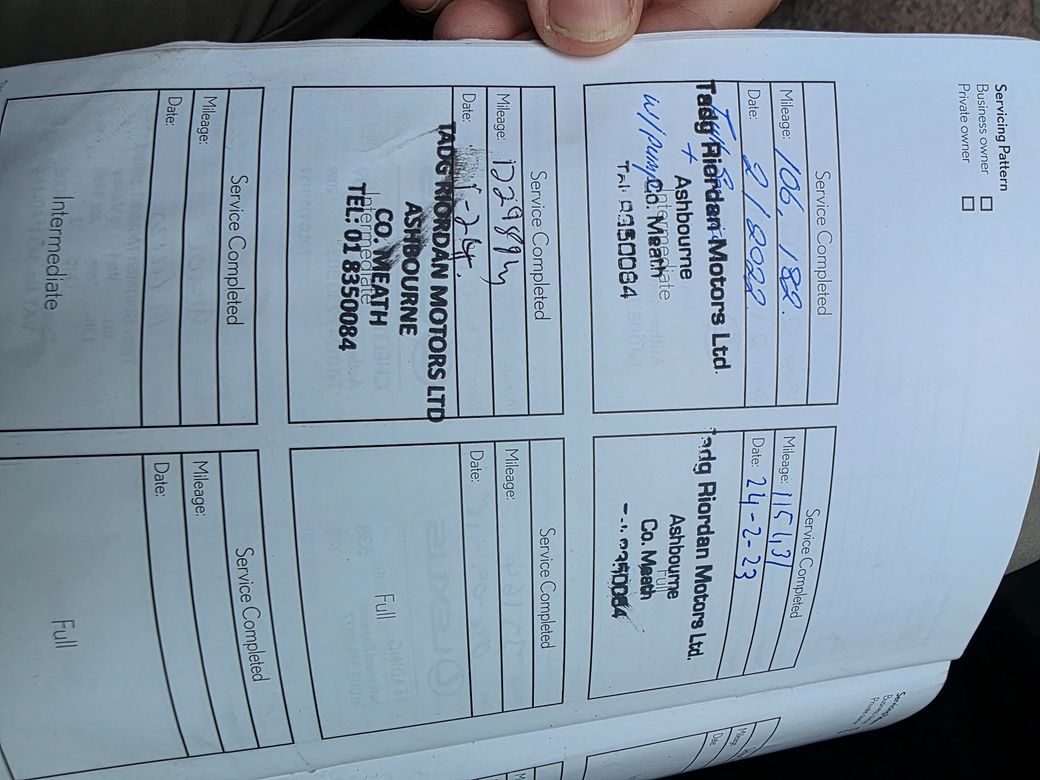 Servicing Pattern
Business owner
Private owner
Service Completed
Mileage: 106,182.
Date: 2/2022
Tadg Riordan Motors Ltd.
+
Ashbourne
w/pump
Co. Meath
Intermediate
Tel: 8350084
Service Completed
Mileage: 115431
Date: 24-2-23
Tadg Riordan Motors Ltd.
Ashbourne
Full
Co. Meath
8350084
Service Completed
Mileage:
Date:
TADG RIORDAN MOTORS LTD
ASHBOURNE
CO. MEATH
Intermediate
TEL: 01 8350084
Service Completed
Mileage:
Date:
Full
Service Completed
Mileage:
Date:
Intermediate
Service Completed
Mileage:
Date:
Full
Servicing
Business
Private
Mileage:
Date: